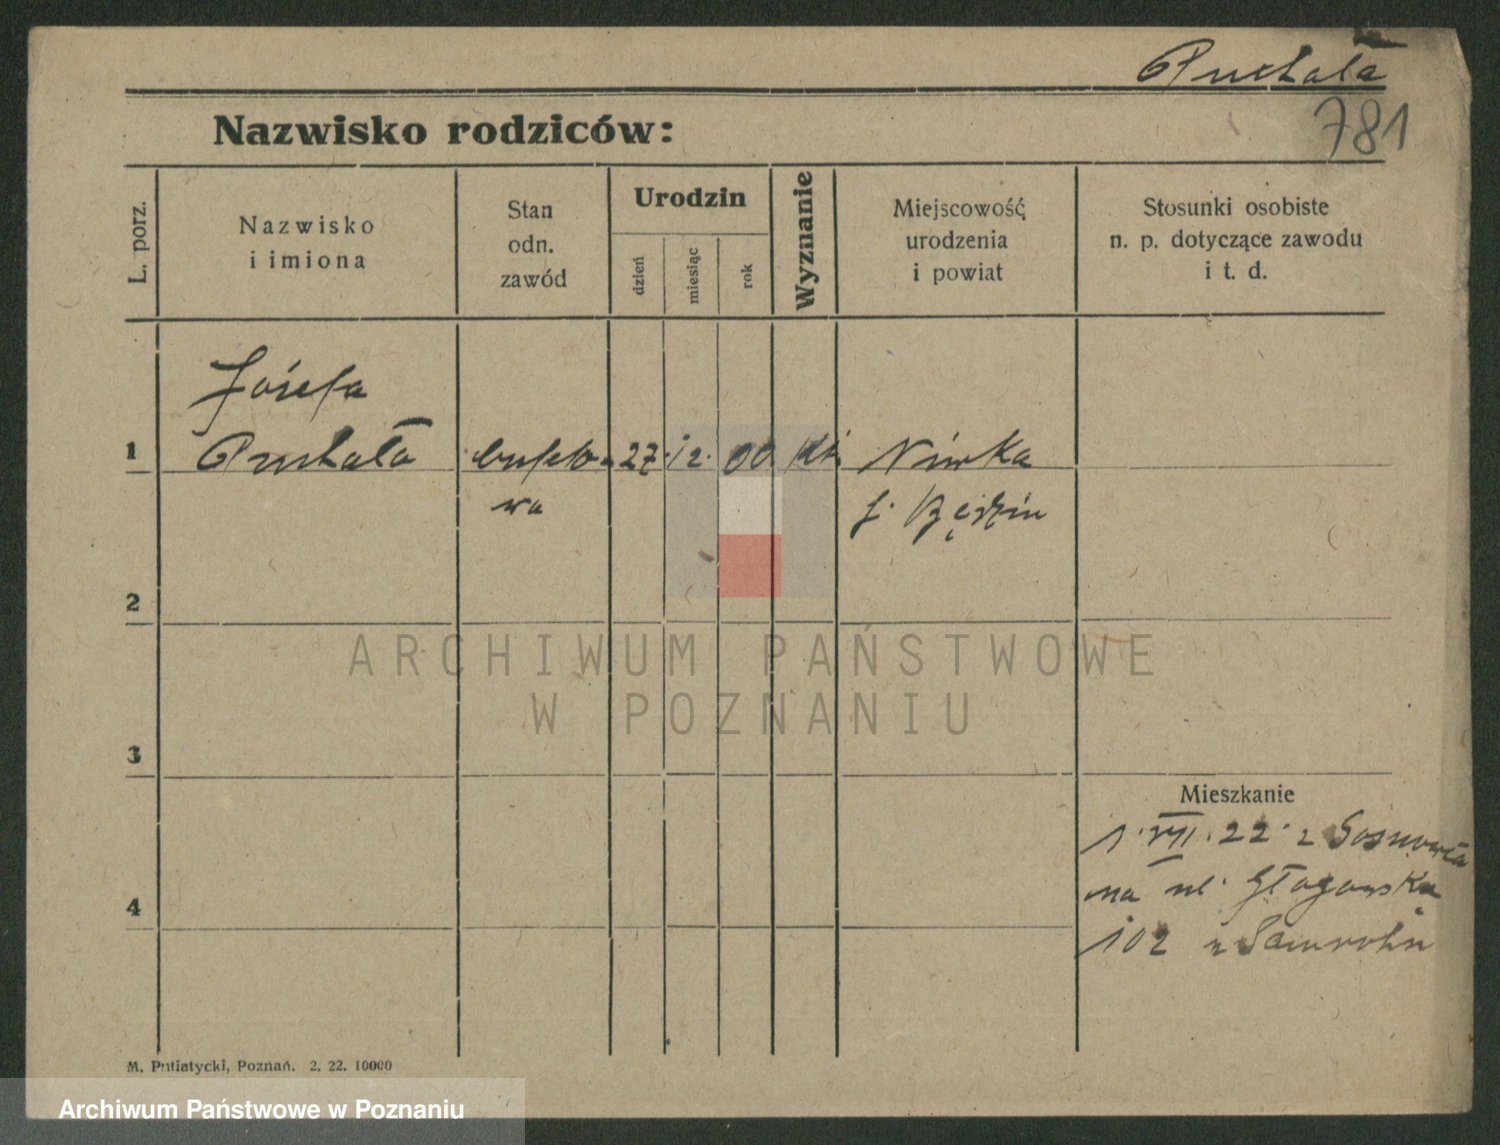 Puchała
781
Nazwisko rodziców:
L. porz.
Nazwisko
i imiona
Stan
odn.
zawód
Urodzin
dzień
miesiąc
rok
Wyznanie
Miejscowość
urodzenia
i powiat
Stosunki osobiste
n. p. dotyczące zawodu
i t. d.
Józefa
1 Puchała bufeto- 27. 12. 00 kt. Niwka
wa p. Będzin
2
ARCHIWUM PAŃSTWOWE
W POZNANIU
3
Mieszkanie
1. VII. 22. z Sosnowca
4
na ul. Głogowską
102 u
M. Putiatycki, Poznań. 2. 22. 10000
Archiwum Państwowe w Poznaniu